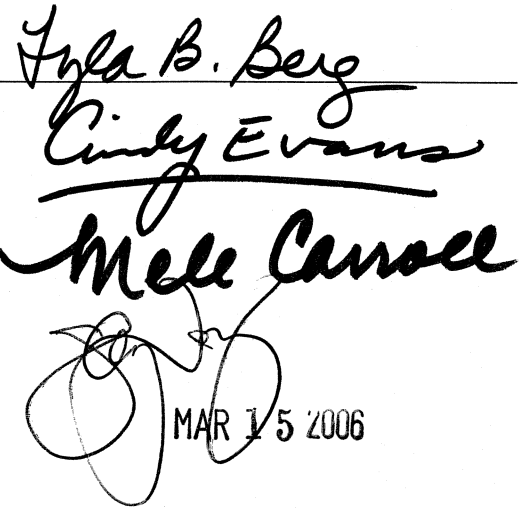 Lyla B. Berg
Cindy Evans
Mele Carroll
MAR 15 2006